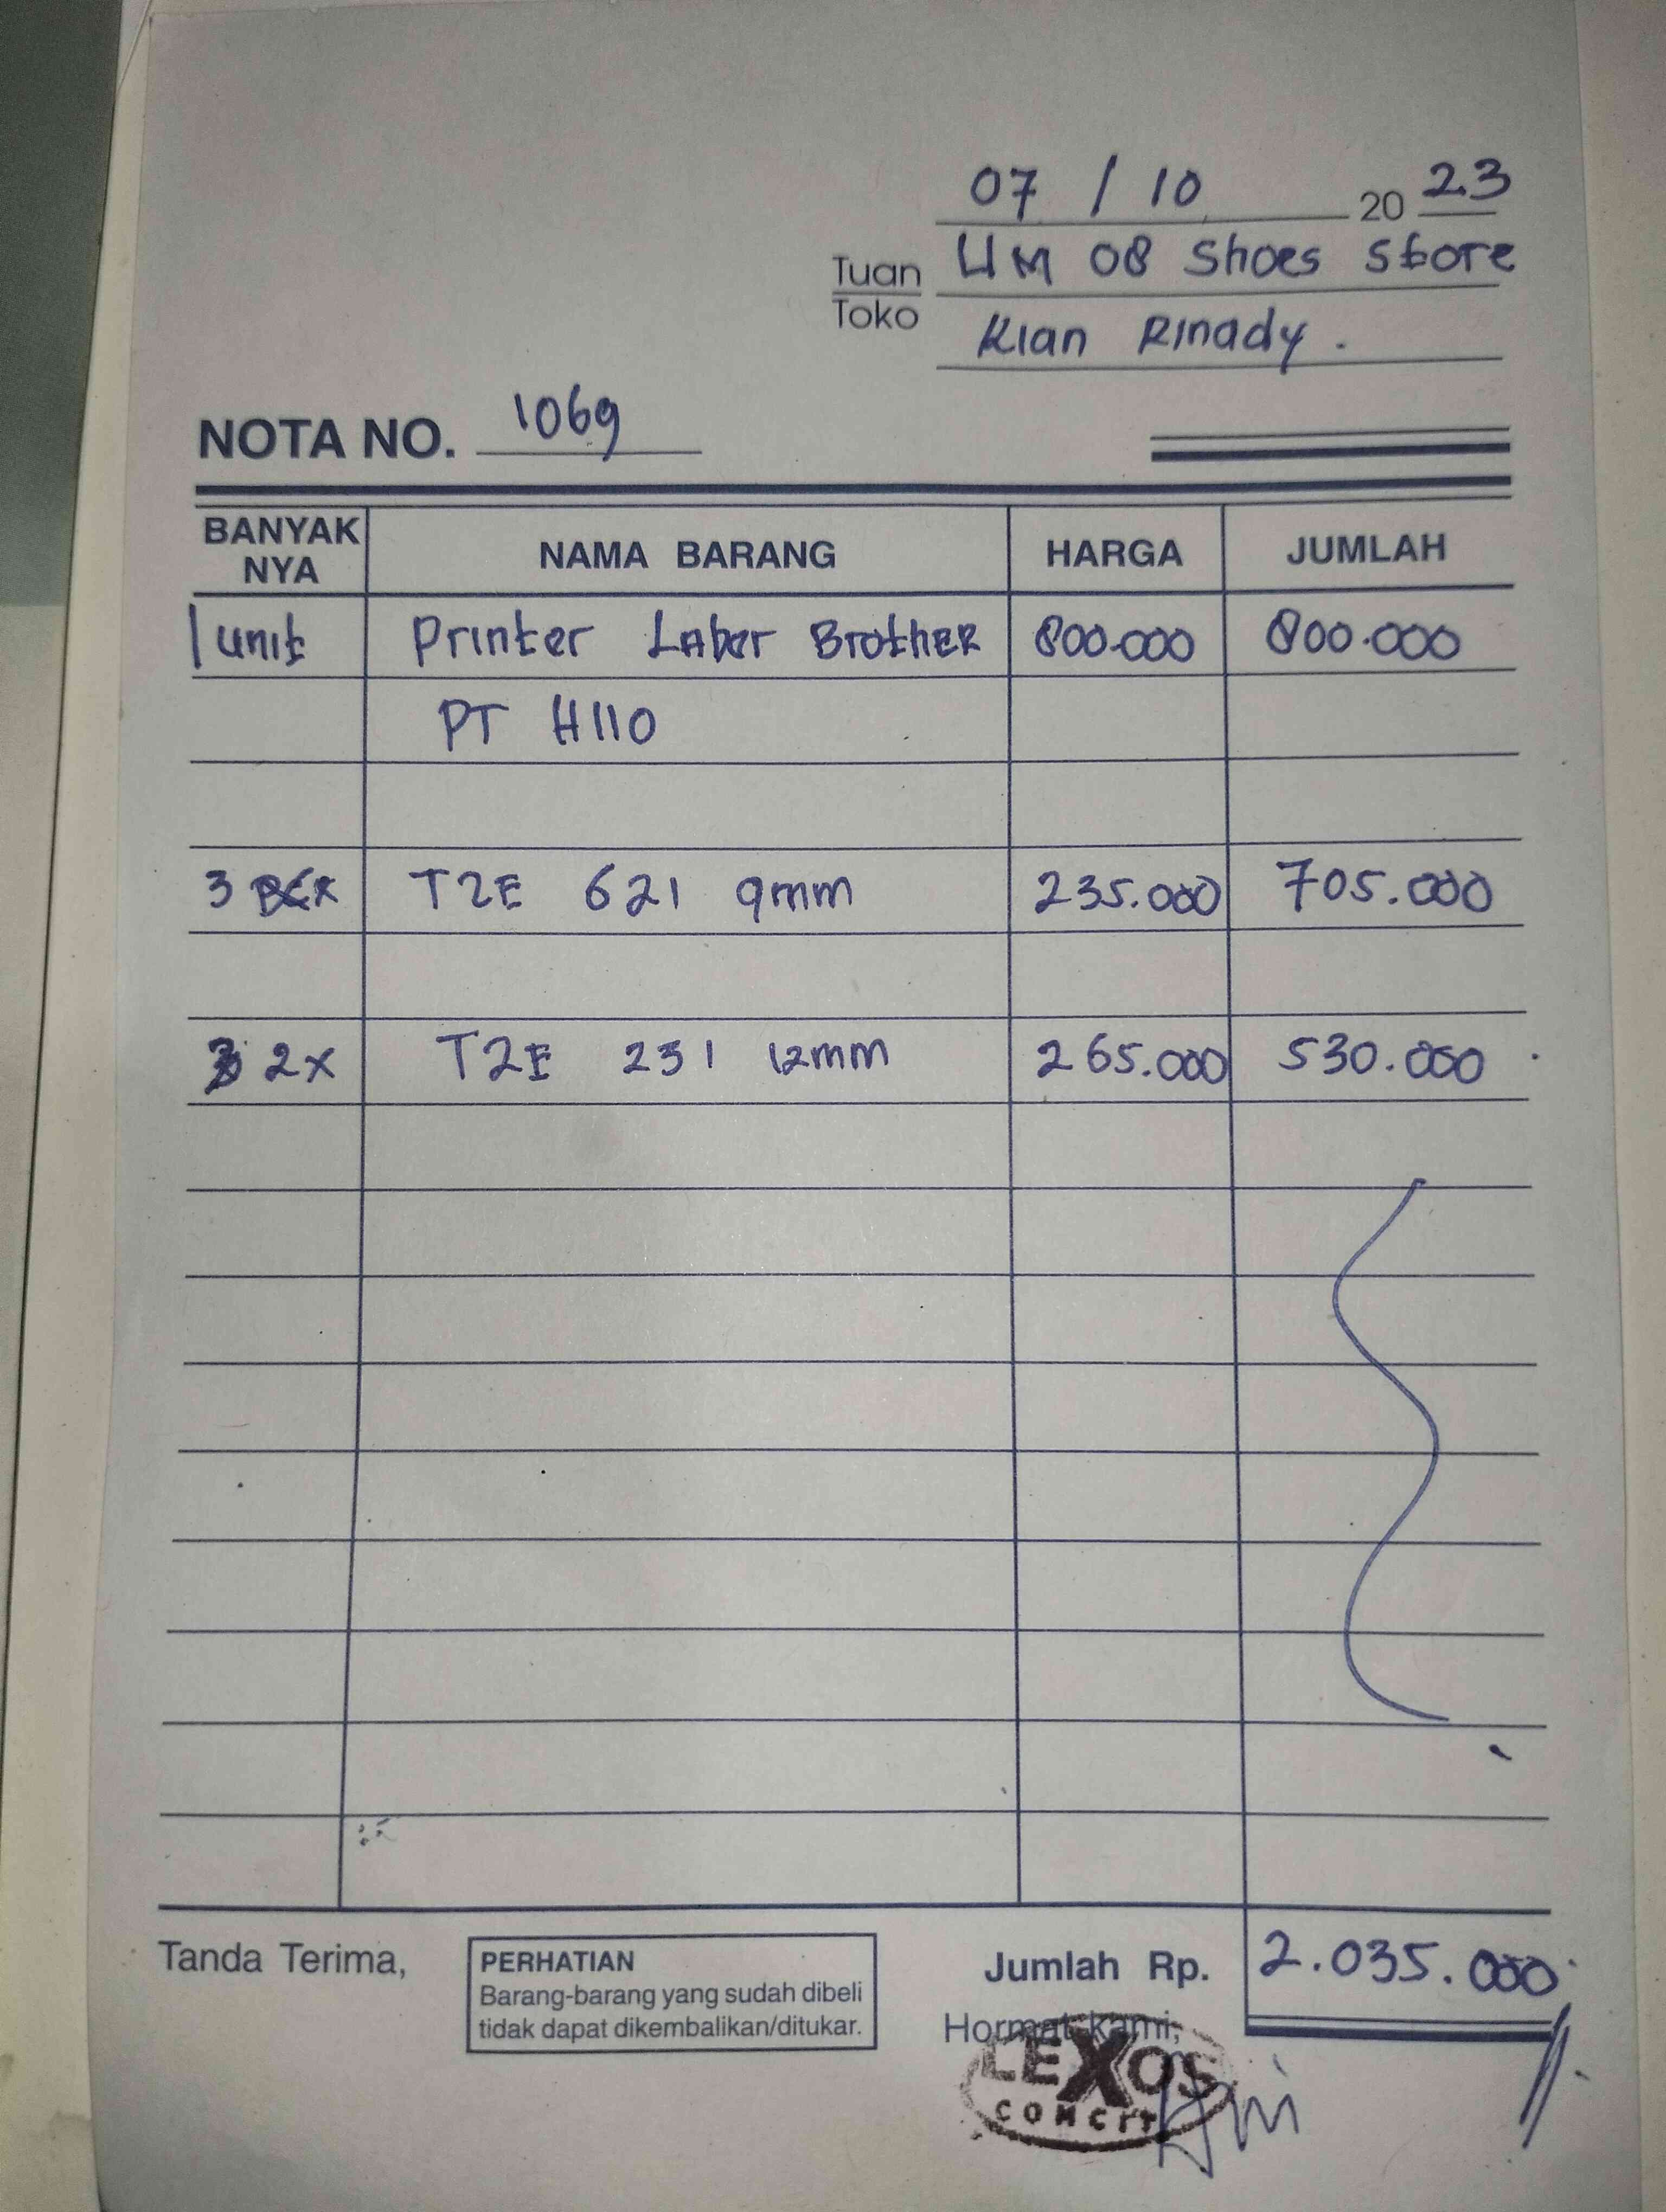 07 / 10 20 23
Tuan UM 08 Shoes Store
Toko Kian Rinady.
NOTA NO. 1069
BANYAK NYA NAMA BARANG HARGA JUMLAH
1 unit Printer Laber Brother 800.000 800.000
PT H110
3 TZE 621 9mm 235.000 705.000
2x TZE 231 12mm 265.000 530.000
Tanda Terima, PERHATIAN Jumlah Rp. 2.035.000
Barang-barang yang sudah dibeli
tidak dapat dikembalikan/ditukar. Hormat kami,
LEXOS